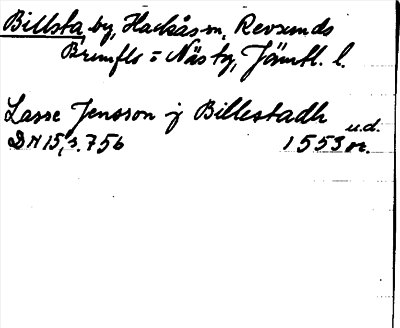 Billsta, by, Hackås sn, Revsunds
Brunflo = Näs tg, Jämtl. l.
Lasse Jensson j Billestadh
u.d.
DN 15, s. 756 1553 or.